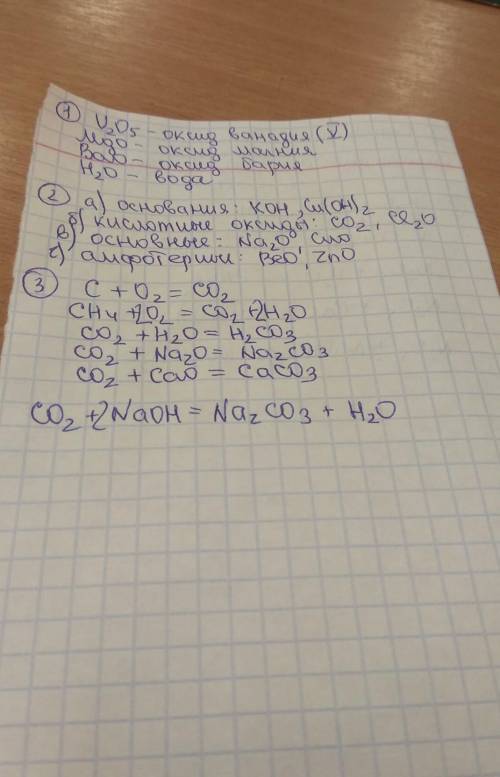 ① V₂O₅ - оксид ванадия (V)
MgO - оксид магния
BaO - оксид бария
H₂O - вода
② а) основания: KOH, Cu(OH)₂
б) кислотные оксиды: CO₂, Cl₂O
в) основные: Na₂O, CuO
г) амфотерные: BeO, ZnO
③ C + O₂ = CO₂
CH₄ + 2O₂ = CO₂ + 2H₂O
CO₂ + H₂O = H₂CO₃
CO₂ + Na₂O = Na₂CO₃
CO₂ + CaO = CaCO₃
CO₂ + 2NaOH = Na₂CO₃ + H₂O